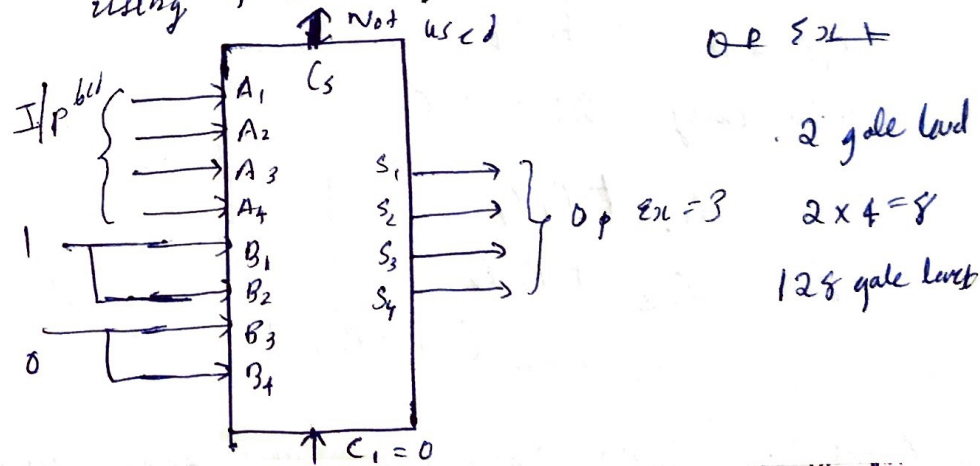 using
Not used
C5
I/p bcd
A1
A2
A3
A4
1
B1
B2
0
B3
B4
S1
S2
S3
S4
O/p Ex = 3
C1 = 0
2 gate level
2 x 4 = 8
128 gate level